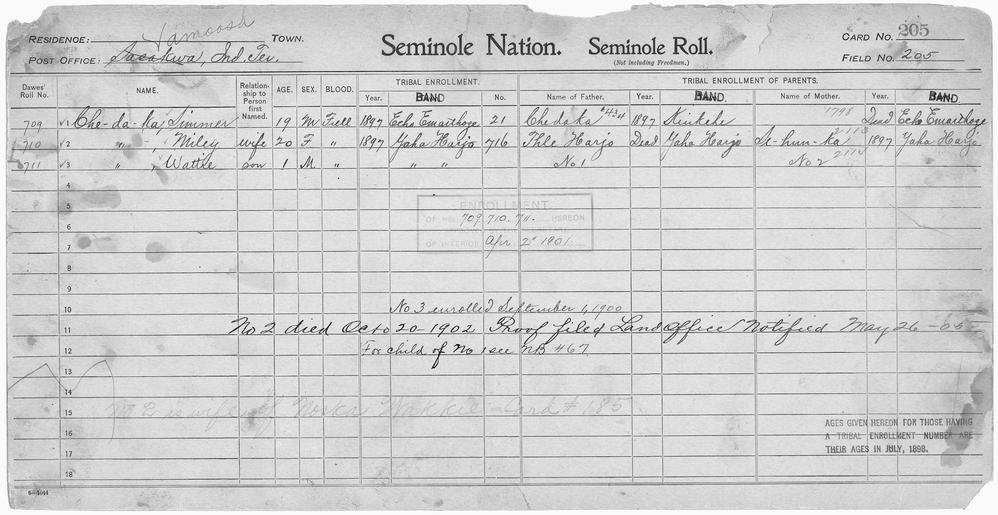 RESIDENCE: Vamoosh TOWN.
POST OFFICE: Sasakwa, Ind. Ter.
Seminole Nation. Seminole Roll.
(Not including Freedmen.)
CARD NO. 205
FIELD NO. 205
Dawes' Roll No. NAME. Relationship to Person first Named. AGE. SEX. BLOOD. TRIBAL ENROLLMENT. TRIBAL ENROLLMENT OF PARENTS.
Year. BAND No. Name of Father. Year. BAND. Name of Mother. Year. BAND.
709 1 Che-da-ka, Simmer 19 M Full 1897 Echo Emarthoge 21 Chedaka #434 1897 Kinkehe 1798 Dead Echo Emarthoge
710 2 " , Miley wife 20 F " 1897 Yaha Harjo 716 Thle Harjo Dead Yaha Harjo At-hun-ka 2113 1897 Yaha Harjo
711 3 " , Wattle son 1 M. " " " No 1 No 2 2114
4
5
ENROLLMENT
6 OF NOS. 709, 710, 711 HEREON
7 OF INTERIOR Apr. 2" 1901
8
9
10 No 3 enrolled September 1, 1900
11 No 2 died Oct 20-1902 Proof filed Land Office Notified May 26-05
12 For child of No 1 see NB 467
13
14
15 No 2 is wife of Noska Wakkie - Card # 185
16
17
18
AGES GIVEN HEREON FOR THOSE HAVING
A TRIBAL ENROLLMENT NUMBER ARE
THEIR AGES IN JULY, 1898.